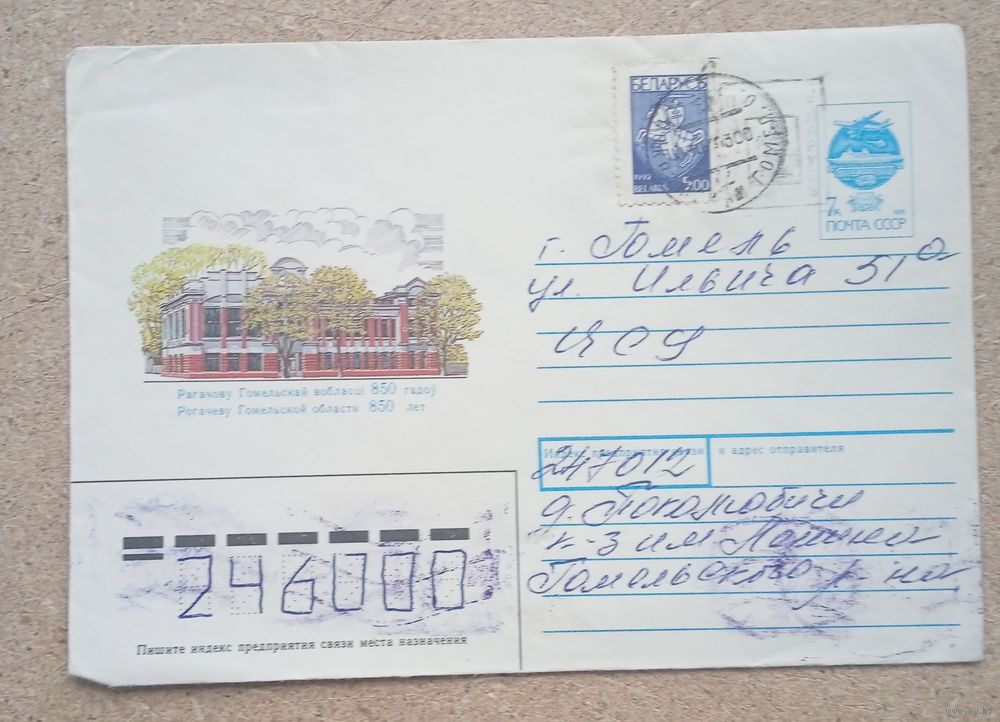 БЕЛАРУСЬ
1992
BELARUS 5.00
7к
ПОЧТА СССР
г. Гомель
ул. Ильича 51а
ЧСФ
Рагачову Гомельскай вобласці 850 гадоў
Рогачеву Гомельской области 850 лет
Индекс предприятия связи и адрес отправителя
247012
д. Поколюбичи
к-з им Ленина
Гомельского р-на
246000
Пишите индекс предприятия связи места назначения